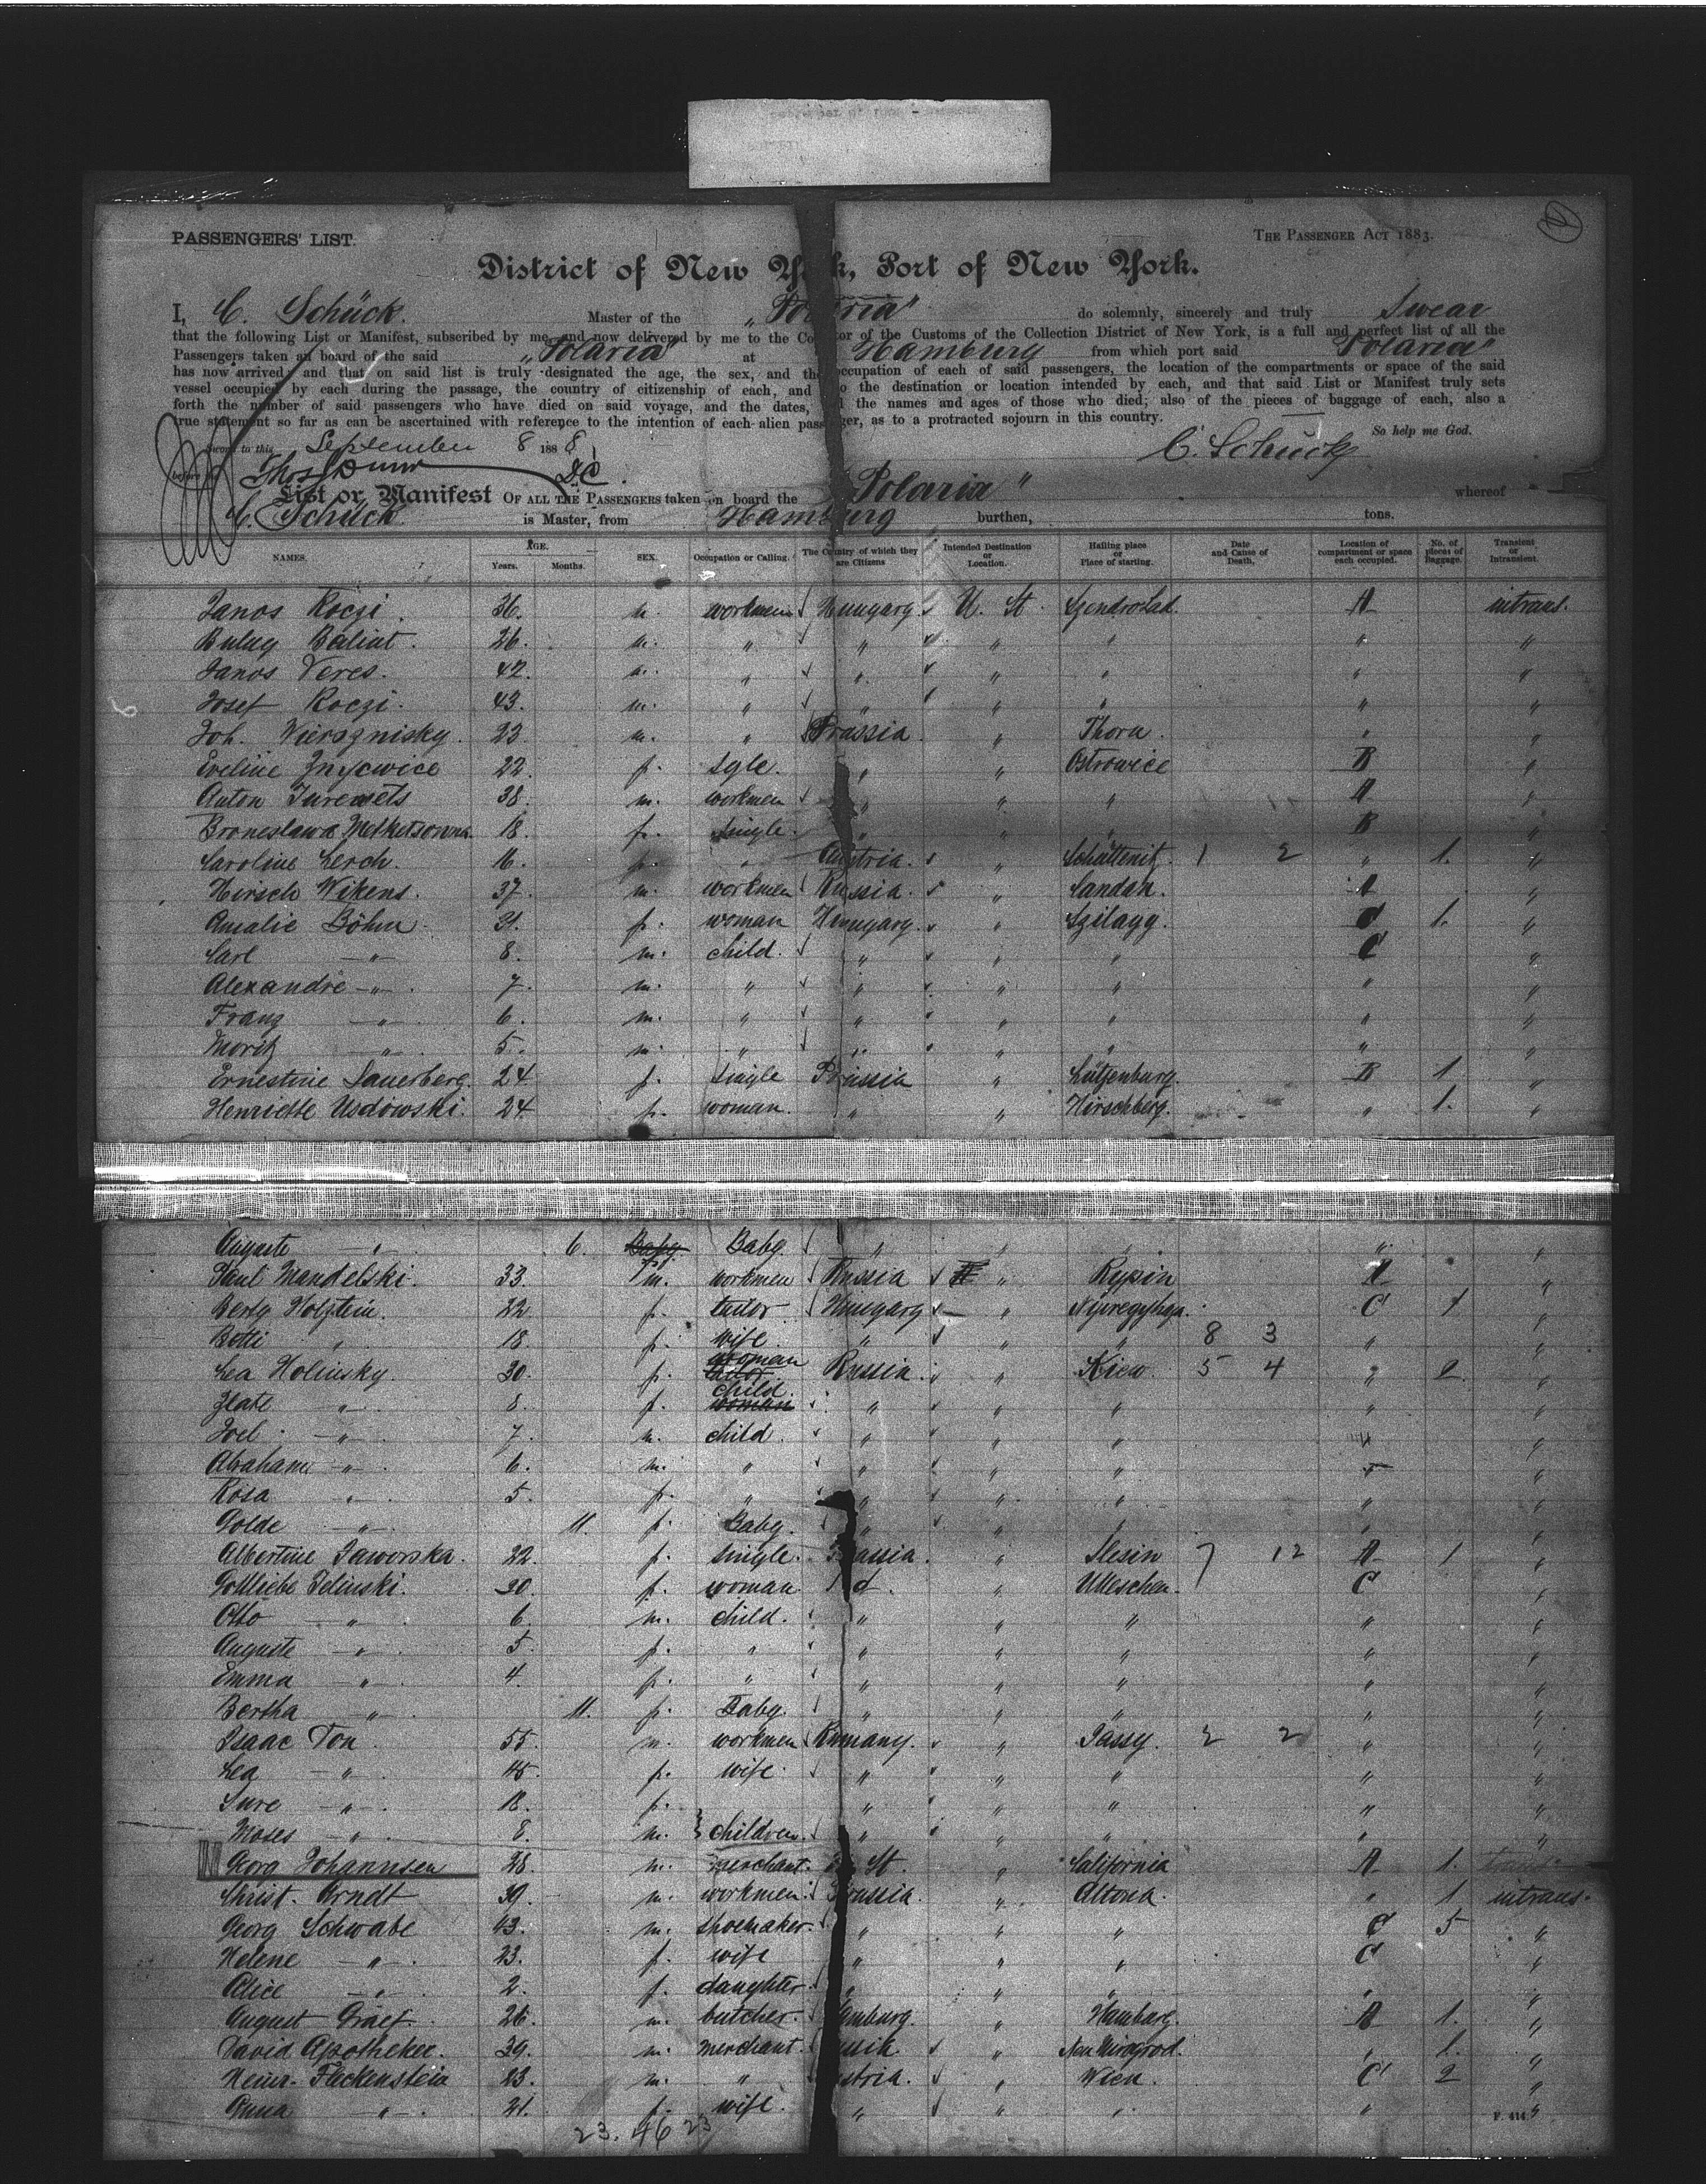 PASSENGERS' LIST.
THE PASSENGER ACT 1883.
District of New Yo k, Port of New York.
I, C. Schück. Master of the „Polaria" do solemnly, sincerely and truly Swear
that the following List or Manifest, subscribed by me and now delivered by me to the Co tor of the Customs of the Collection District of New York, is a full and perfect list of all the
Passengers taken on board of the said „Polaria" at Hamburg from which port said Polaria"
has now arrived; and that on said list is truly designated the age, the sex, and the occupation of each of said passengers, the location of the compartments or space of the said
vessel occupied by each during the passage, the country of citizenship of each, and o the destination or location intended by each, and that said List or Manifest truly sets
forth the number of said passengers who have died on said voyage, and the dates, the names and ages of those who died; also of the pieces of baggage of each, also a
true statement so far as can be ascertained with reference to the intention of each alien pass ger, as to a protracted sojourn in this country.
So help me God.
Sworn to this September 8 1888
C. Schück
before Thos Dunn D.C.
List or Manifest OF ALL THE PASSENGERS taken on board the Polaria" whereof
C. Schück is Master, from Hamburg burthen, tons.
NAMES. AGE. Years. Months. SEX. Occupation or Calling. The Country of which they are Citizens Intended Destination or Location. Hailing place or Place of starting. Date and Cause of Death. Location of compartment or space each occupied. No. of pieces of Baggage. Transient or Intransient.
Janos Koczi. 36. m. workmen Hungary U. St. Szendrolad. A intrans.
Baliat. 26. m. „ „ „ „ „ „
Janos Veres. 42. m. „ „ „ „ „ „
Josef Koczi. 43. m. „ „ „ „ „ „
Joh. Wieraznisky. 23. m. „ Prussia. „ Thorn. „ „
Eveline 22. f. sgle. „ „ Ostrowice B „
Anton 38. m. workmen „ „ „ A „
Broneslawa 18. f. single. „ „ „ B „
Caroline Lerch. 16. f. „ Austria. „ Schüttenitz. 1 2 „ 1. „
Hirsch Wikens. 37. m. workmen Russia. „ Landan. A „
Amalie Böhm. 31. f. woman Hungary. „ Szilagy. C 1. „
Carl „ 8. m. child. „ „ „ C „
Alexandre „ 7. m. „ „ „ „ „ „
Franz „ 6. m. „ „ „ „ „ „
Moritz „ 5. m. „ „ „ „ „ „
Ernestine Sauerberg. 24 f. single Prussia „ Lütjenburg. B 1 „
Henriette Usdowski. 24 f. woman. „ „ Hirschberg. „ 1. „
Auguste „ 6. f. Baby. „ „ „ „ „
Paul Mandelski. 33. m. workmen Russia „ Rypin A „
Berty Holztein. 22. f. tailor Hungary „ C 1 „
Betti „ 18. f. wife „ „ „ 8 3 „ „
Lea Holinsky. 30. f. woman Russia. „ Kiew. 5 4 „ 2. „
Zlate „ 8. f. child. „ „ „ „ „
Joel „ 7. m. child. „ „ „ „ „
Abraham „ 6. m. „ „ „ „ „ „
Rosa „ 5. f. „ „ „ „ „ „
Golde „ 11. f. Baby. „ „ „ „ „
Albertine Jaworska. 22. f. single. Prussia. „ Slesin 7 12 A 1 „
Gottliebe Jelinski. 30. f. woman. d. „ Ulleschen. C „
Otto „ 6. m. child. „ „ „ „ „
Auguste „ 5. f. „ „ „ „ „ „
Emma „ 4. f. „ „ „ „ „ „
Bertha „ 11. f. Baby. „ „ „ „ „
Isaac Ton. 55. m. workmen Rumany. „ Jassy. 2 2 „ „
Lea „ 45. f. wife. „ „ „ „ „
Sure „ 18. f. „ „ „ „ „
Moses „ 8. m. } children. „ „ „ „ „
Georg Johannsen 28. m. merchant. St. „ California A 1.
Christ. Arndt 39. m. workmen. Prussia. „ Altona. „ 1 intrans.
Georg Schwabe 43. m. shoemaker. „ „ „ C 5 „
Helene „ 23. f. wife „ „ „ C „
Alice „ 2. f. daughter. „ „ „ „ „
August Graef. 26. m. butcher. Hamburg. „ Hamburg. A 1. „
David Apotheker. 39. m. merchant. ussia „ Neu Mirgorod. „ 1. „
Heinr. Fleckenstein 23. m. „ stria. „ Wien. C 2 „
Anna „ 21. f. wife. „ „ „ „ „
23. 46 23
F. 414